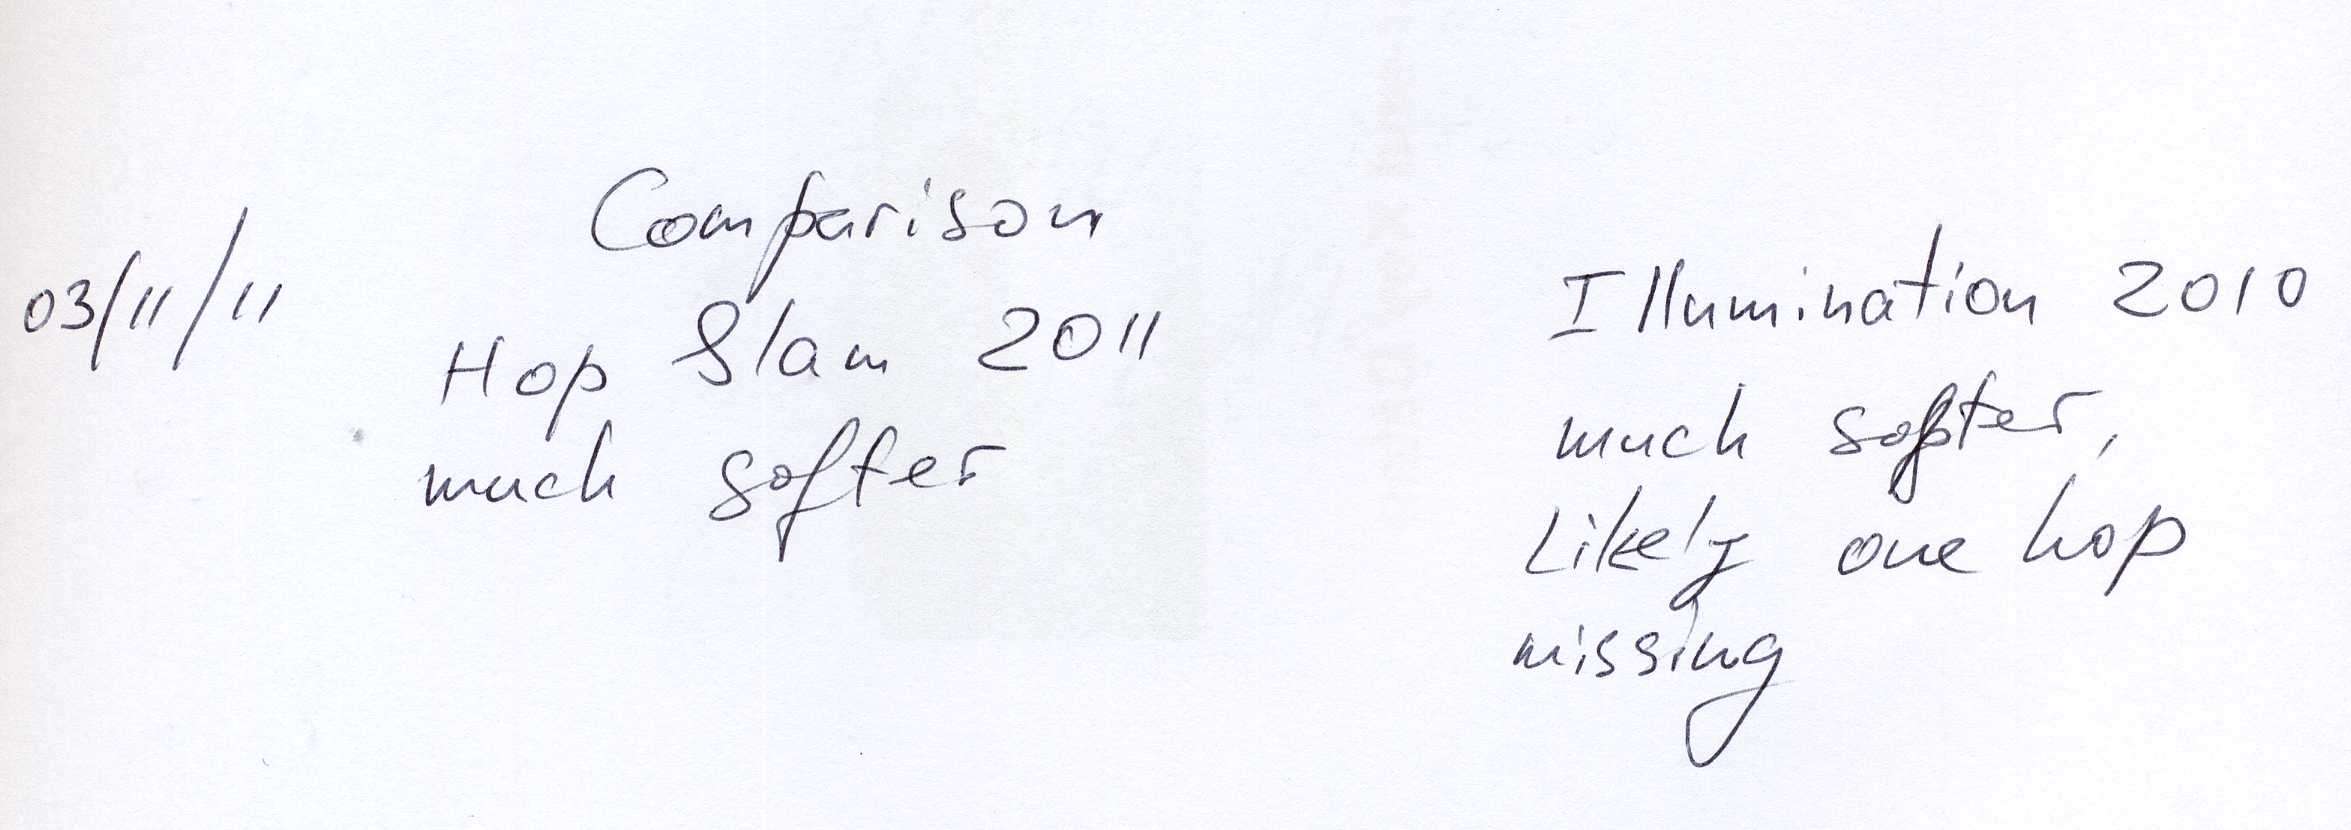 Comparison
03/11/11
Hop Slam 2011
much softer
Illumination 2010
much softer,
Likely one hop
missing